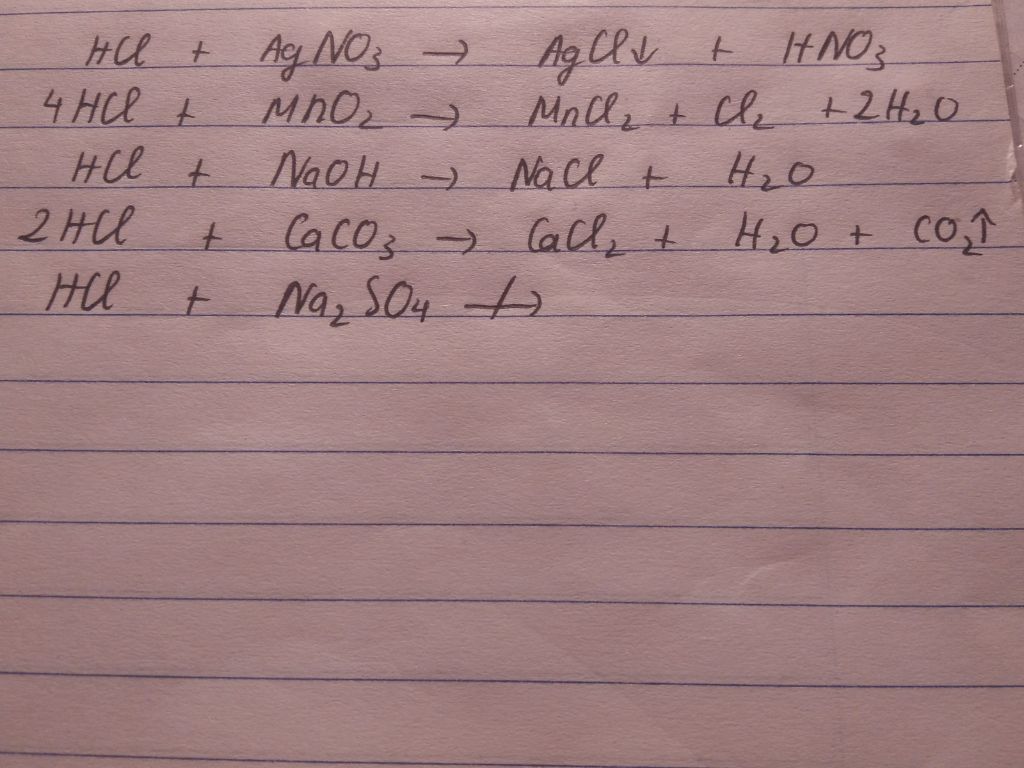 HCl + AgNO₃ → AgCl↓ + HNO₃
4HCl + MnO₂ → MnCl₂ + Cl₂ + 2H₂O
HCl + NaOH → NaCl + H₂O
2HCl + CaCO₃ → CaCl₂ + H₂O + CO₂↑
HCl + Na₂SO₄ ↛